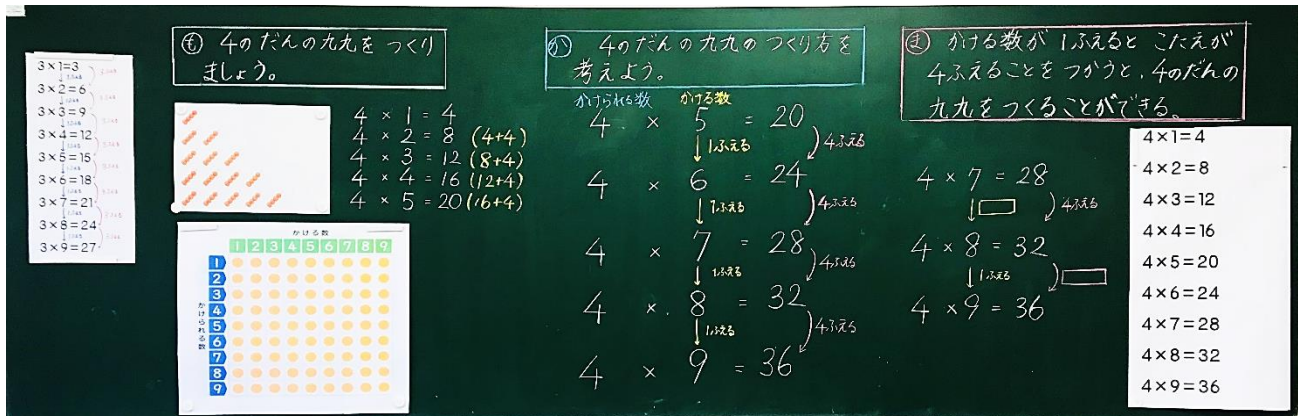 3×1=3
3×2=6
3×3=9
3×4=12
3×5=15
3×6=18
3×7=21
3×8=24
3×9=27
も 4のだんの九九を つくり
ましょう。
4 × 1 = 4
4 × 2 = 8 (4+4)
4 × 3 = 12 (8+4)
4 × 4 = 16 (12+4)
4 × 5 = 20 (16+4)
かける数
1 2 3 4 5 6 7 8 9
かけられる数
1
2
3
4
5
6
7
8
9
か 4のだんの九九の つくり方を
考えよう。
かけられる数 かける数
4 × 5 = 20
↓1ふえる 4ふえる
4 × 6 = 24
↓1ふえる 4ふえる
4 × 7 = 28
↓1ふえる 4ふえる
4 × 8 = 32
↓1ふえる 4ふえる
4 × 9 = 36
ま かける数が 1ふえると こたえが
4ふえることを つかうと、4のだんの
九九をつくることができる。
4 × 7 = 28
↓ 4ふえる
4 × 8 = 32
↓1ふえる
4 × 9 = 36
4×1=4
4×2=8
4×3=12
4×4=16
4×5=20
4×6=24
4×7=28
4×8=32
4×9=36